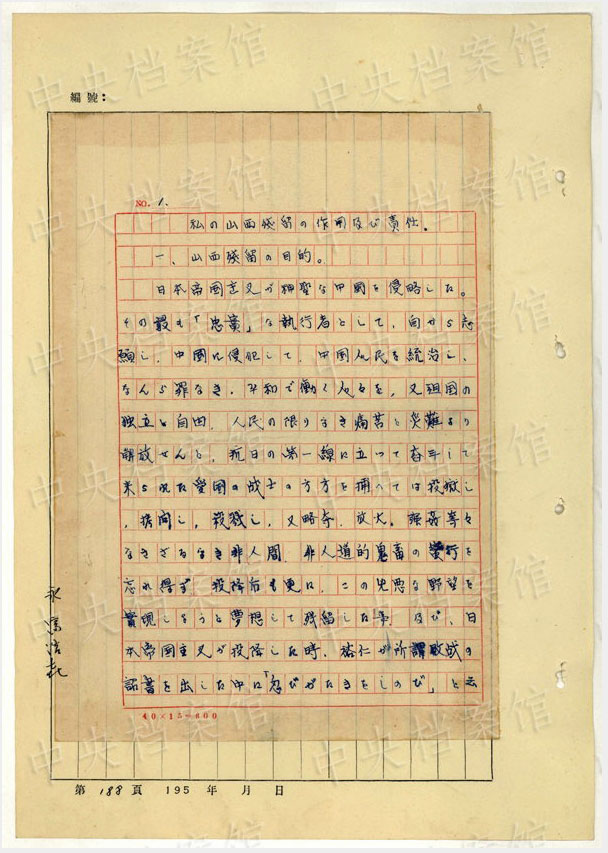 編號：
NO. 1.
私の山西残留の作用及び責任。
一、山西残留の目的。
日本帝国主义が神聖な中國を侵略した。
その最も「忠実」な執行者として、自から志
願し、中國に侵犯して、中国人民を統治し、
なんら罪なき、平和で働く人々を、又祖国の
独立と自由、人民の限りなき痛苦と災難より
解放せんと、抗日の第一線に立つて奋斗して
来られた愛国の战士の方方を捕へては投獄し
、拷問し、殺戮し、又略夺、放火、強姦等々
なさざるなき非人間、非人道的鬼畜の蛮行を
忘れ得ず 投降后も更に、この兇悪な野望を
實現しようと夢想して残留した事 及び、日
本帝国主义が投降した時、裕仁が所謂敗战の
詔書を出した中に「忍びがたきをしのび」と云
永富浩喜
40×15=600
第 188 頁 195 年 月 日
中央档案馆